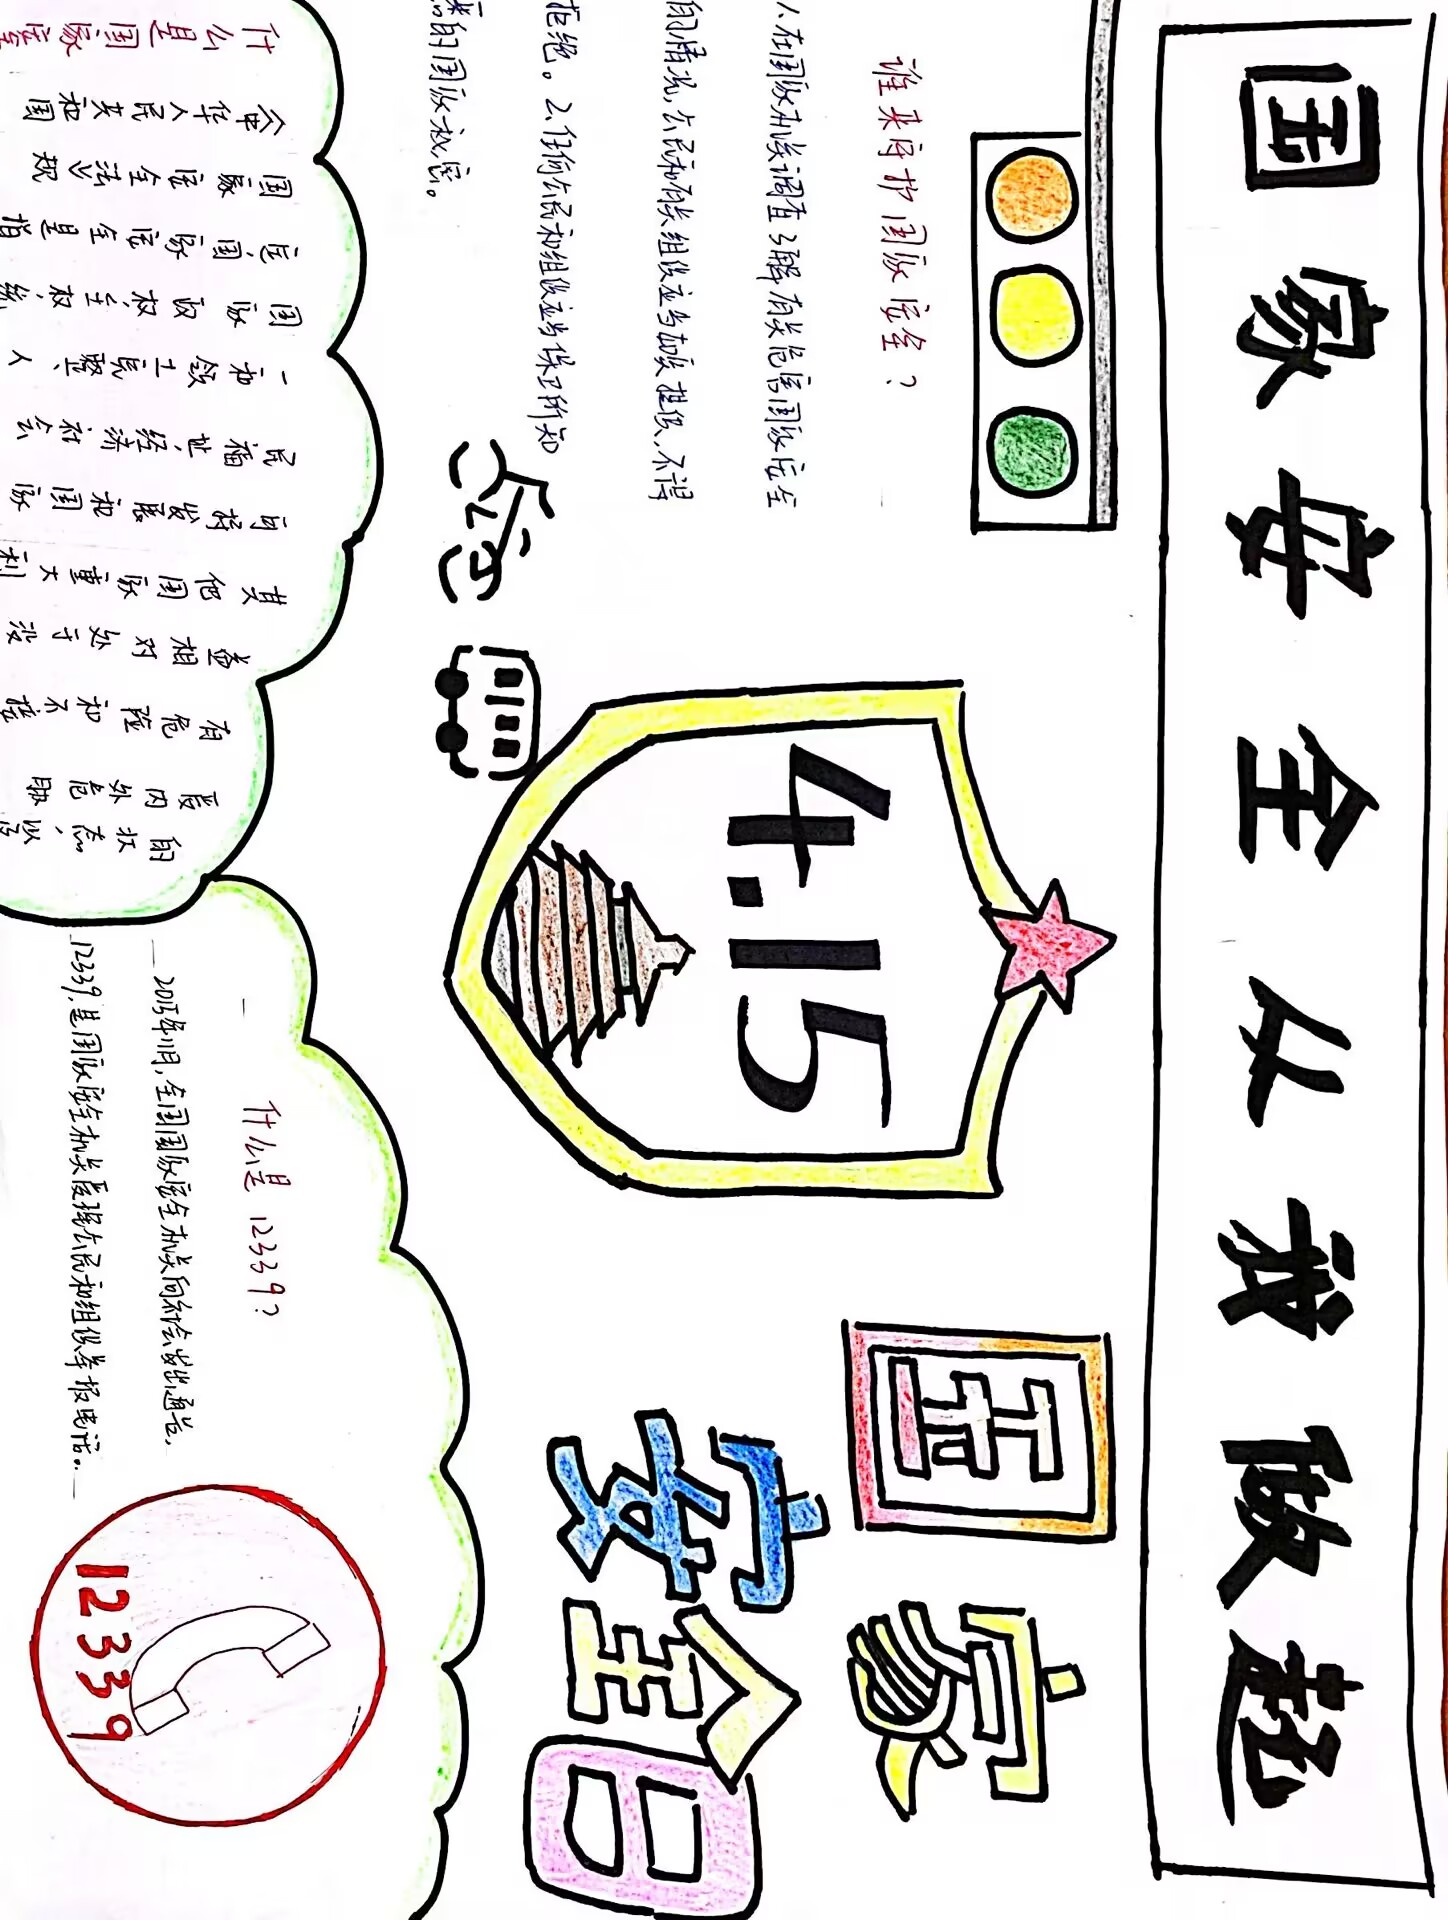 国家安全从我做起
谁来守护国家安全?
1.在国家机关调查了解有关危害国家安全
的情况,公民和有关组织应当如实提供,不得
拒绝。2.任何公民和组织应当保卫所知
悉的国家秘密。
4.15
国家
安全日
什么是国家安全
中华人民共和国
国家安全法规
定,国家安全是指
国家政权、主权、统
一和领土完整、人
民福祉、经济社会
可持续发展和国家
其他国家重大利
益相对处于没
有危险和不
受内外危胁
的状态,以
什么是12339?
2015年11月,全国国家安全机关向社会发出通告,
12339,是国家安全机关受理公民和组织举报电话。
12339